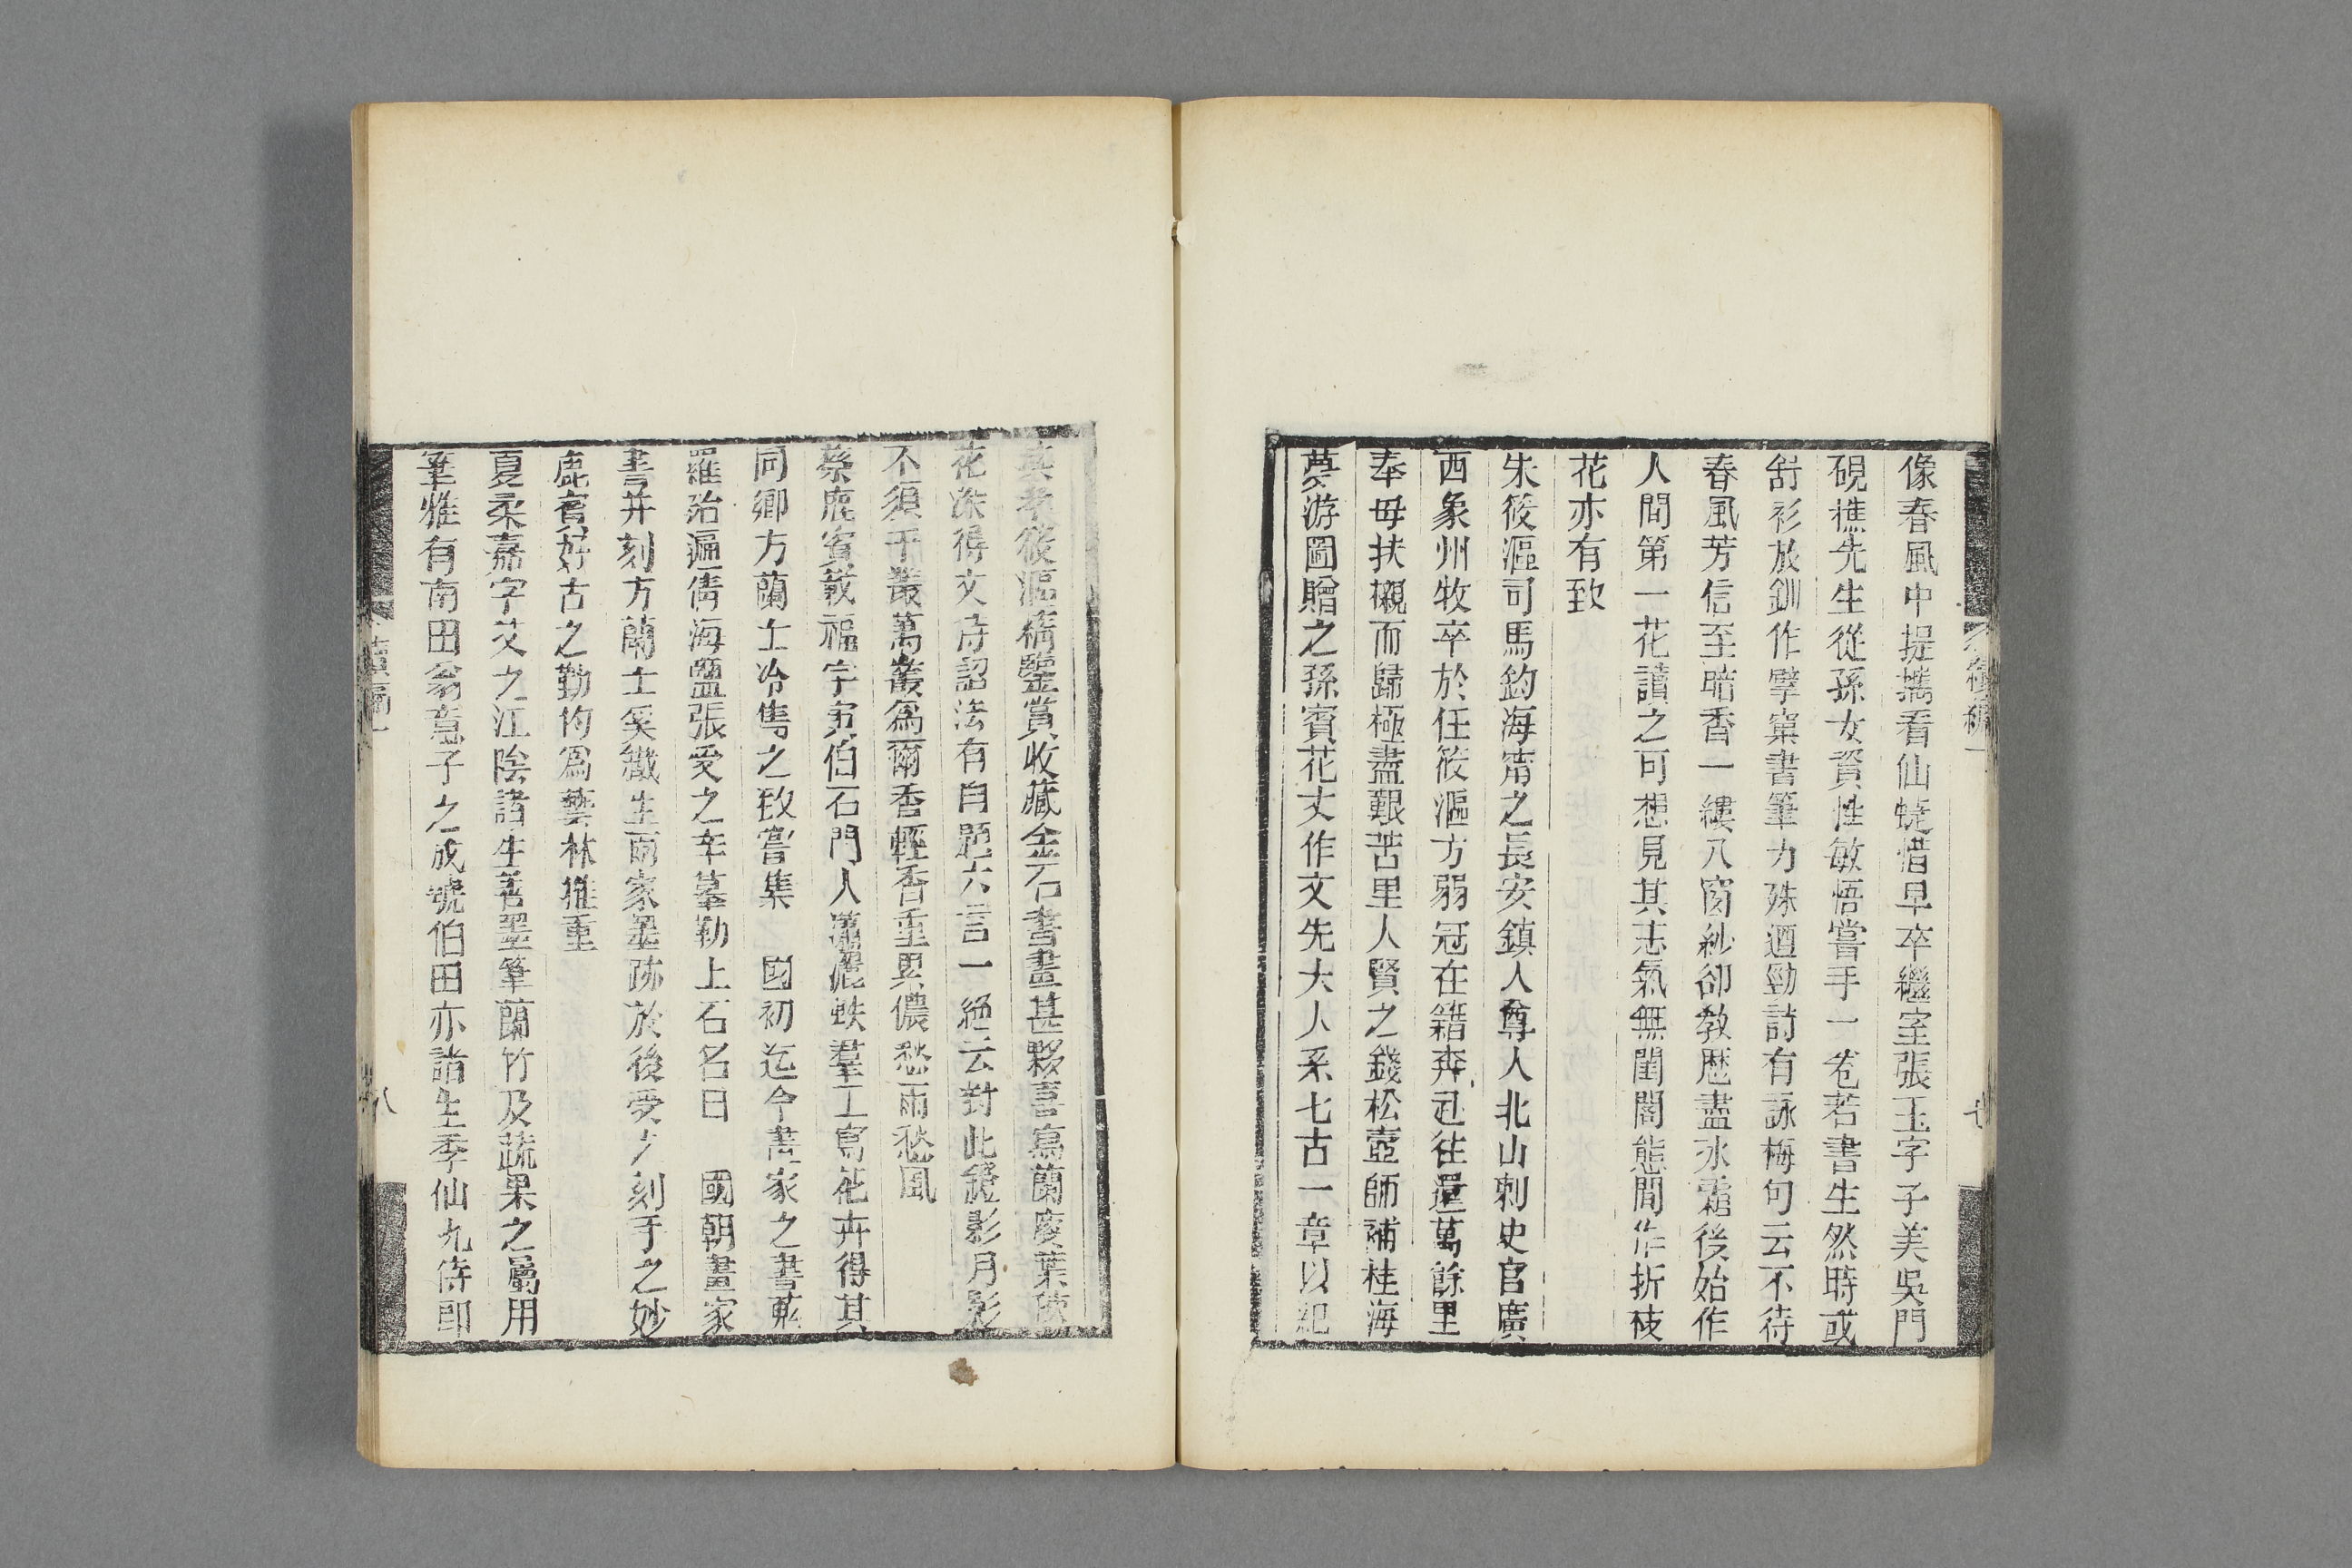 像春風中提攜看仙蜨惜早卒繼室張玉字子美吳門
硯樵先生從孫女資性敏悟嘗手一卷若書生然時或
舒衫放釧作擘窠書筆力殊遒勁詩有詠梅句云不待
春風芳信至暗香一縷入窗紗卻教歷盡氷霜後始作
人間第一花讀之可想見其志氣無閨閣態閒作折枝
花亦有致
朱筱漚司馬鈞海甯之長安鎮人尊人北山刺史官廣
西象州牧卒於任筱漚方弱冠在籍奔赴往還萬餘里
奉母扶櫬而歸極盡艱苦里人賢之錢松壺師補桂海
夢游圖贈之孫賓花丈作文先大人系七古一章以紀
其孝筱漚精鑒賞收藏金石書畫甚夥喜寫蘭瘦葉疎
花深得文待詔法有自題六言一絕云對此鐙影月影
不須千叢萬叢爲爾香輕香重累儂愁雨愁風
蔡鹿賓載福字寅伯石門人瀟灑軼羣工寫花卉得其
同鄉方蘭士冷雋之致嘗集 國初迄今畫家之書蒐
羅殆遍倩海鹽張受之辛摹勒上石名曰 國朝畫家
書并刻方蘭士奚鐵生兩家墨跡於後受之刻手之妙
鹿賓好古之勤均爲藝林推重
夏柔嘉字艾之江陰諸生善墨筆蘭竹及蔬果之屬用
筆雅有南田翁意子之成號伯田亦諸生季仙九侍郎